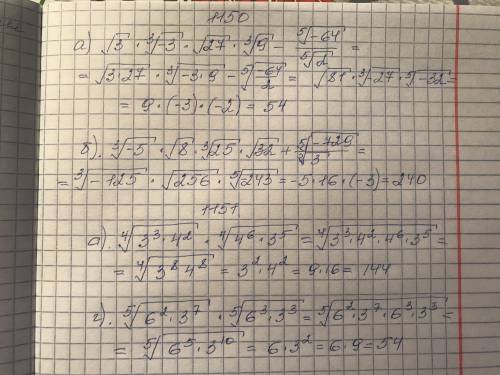 1150
а) √3 · ∛-3 · √27 · ∛9 - ⁵√-64 / ⁵√2 =
= √3·27 · ∛-3·9 - ⁵√-64/2 = √81 · ∛-27 · ⁵√-32 =
= 9 · (-3) · (-2) = 54
б). ∛-5 · √8 · ∛25 · √32 + ⁵√-729 / ⁵√3 =
= ∛-125 · √256 · ⁵√243 = -5·16·(-3) = 240
1151.
а). ⁴√3³·4² · ⁴√4⁶·3⁵ = ⁴√3³·4²·4⁶·3⁵ =
= ⁴√3⁸4⁸ = 3²·4² = 9·16 = 144
г). ⁵√6²·3⁷ · ⁵√6³·3³ = ⁵√6²·3⁷·6³·3³ =
= ⁵√6⁵·3¹⁰ = 6·3² = 6·9 = 54